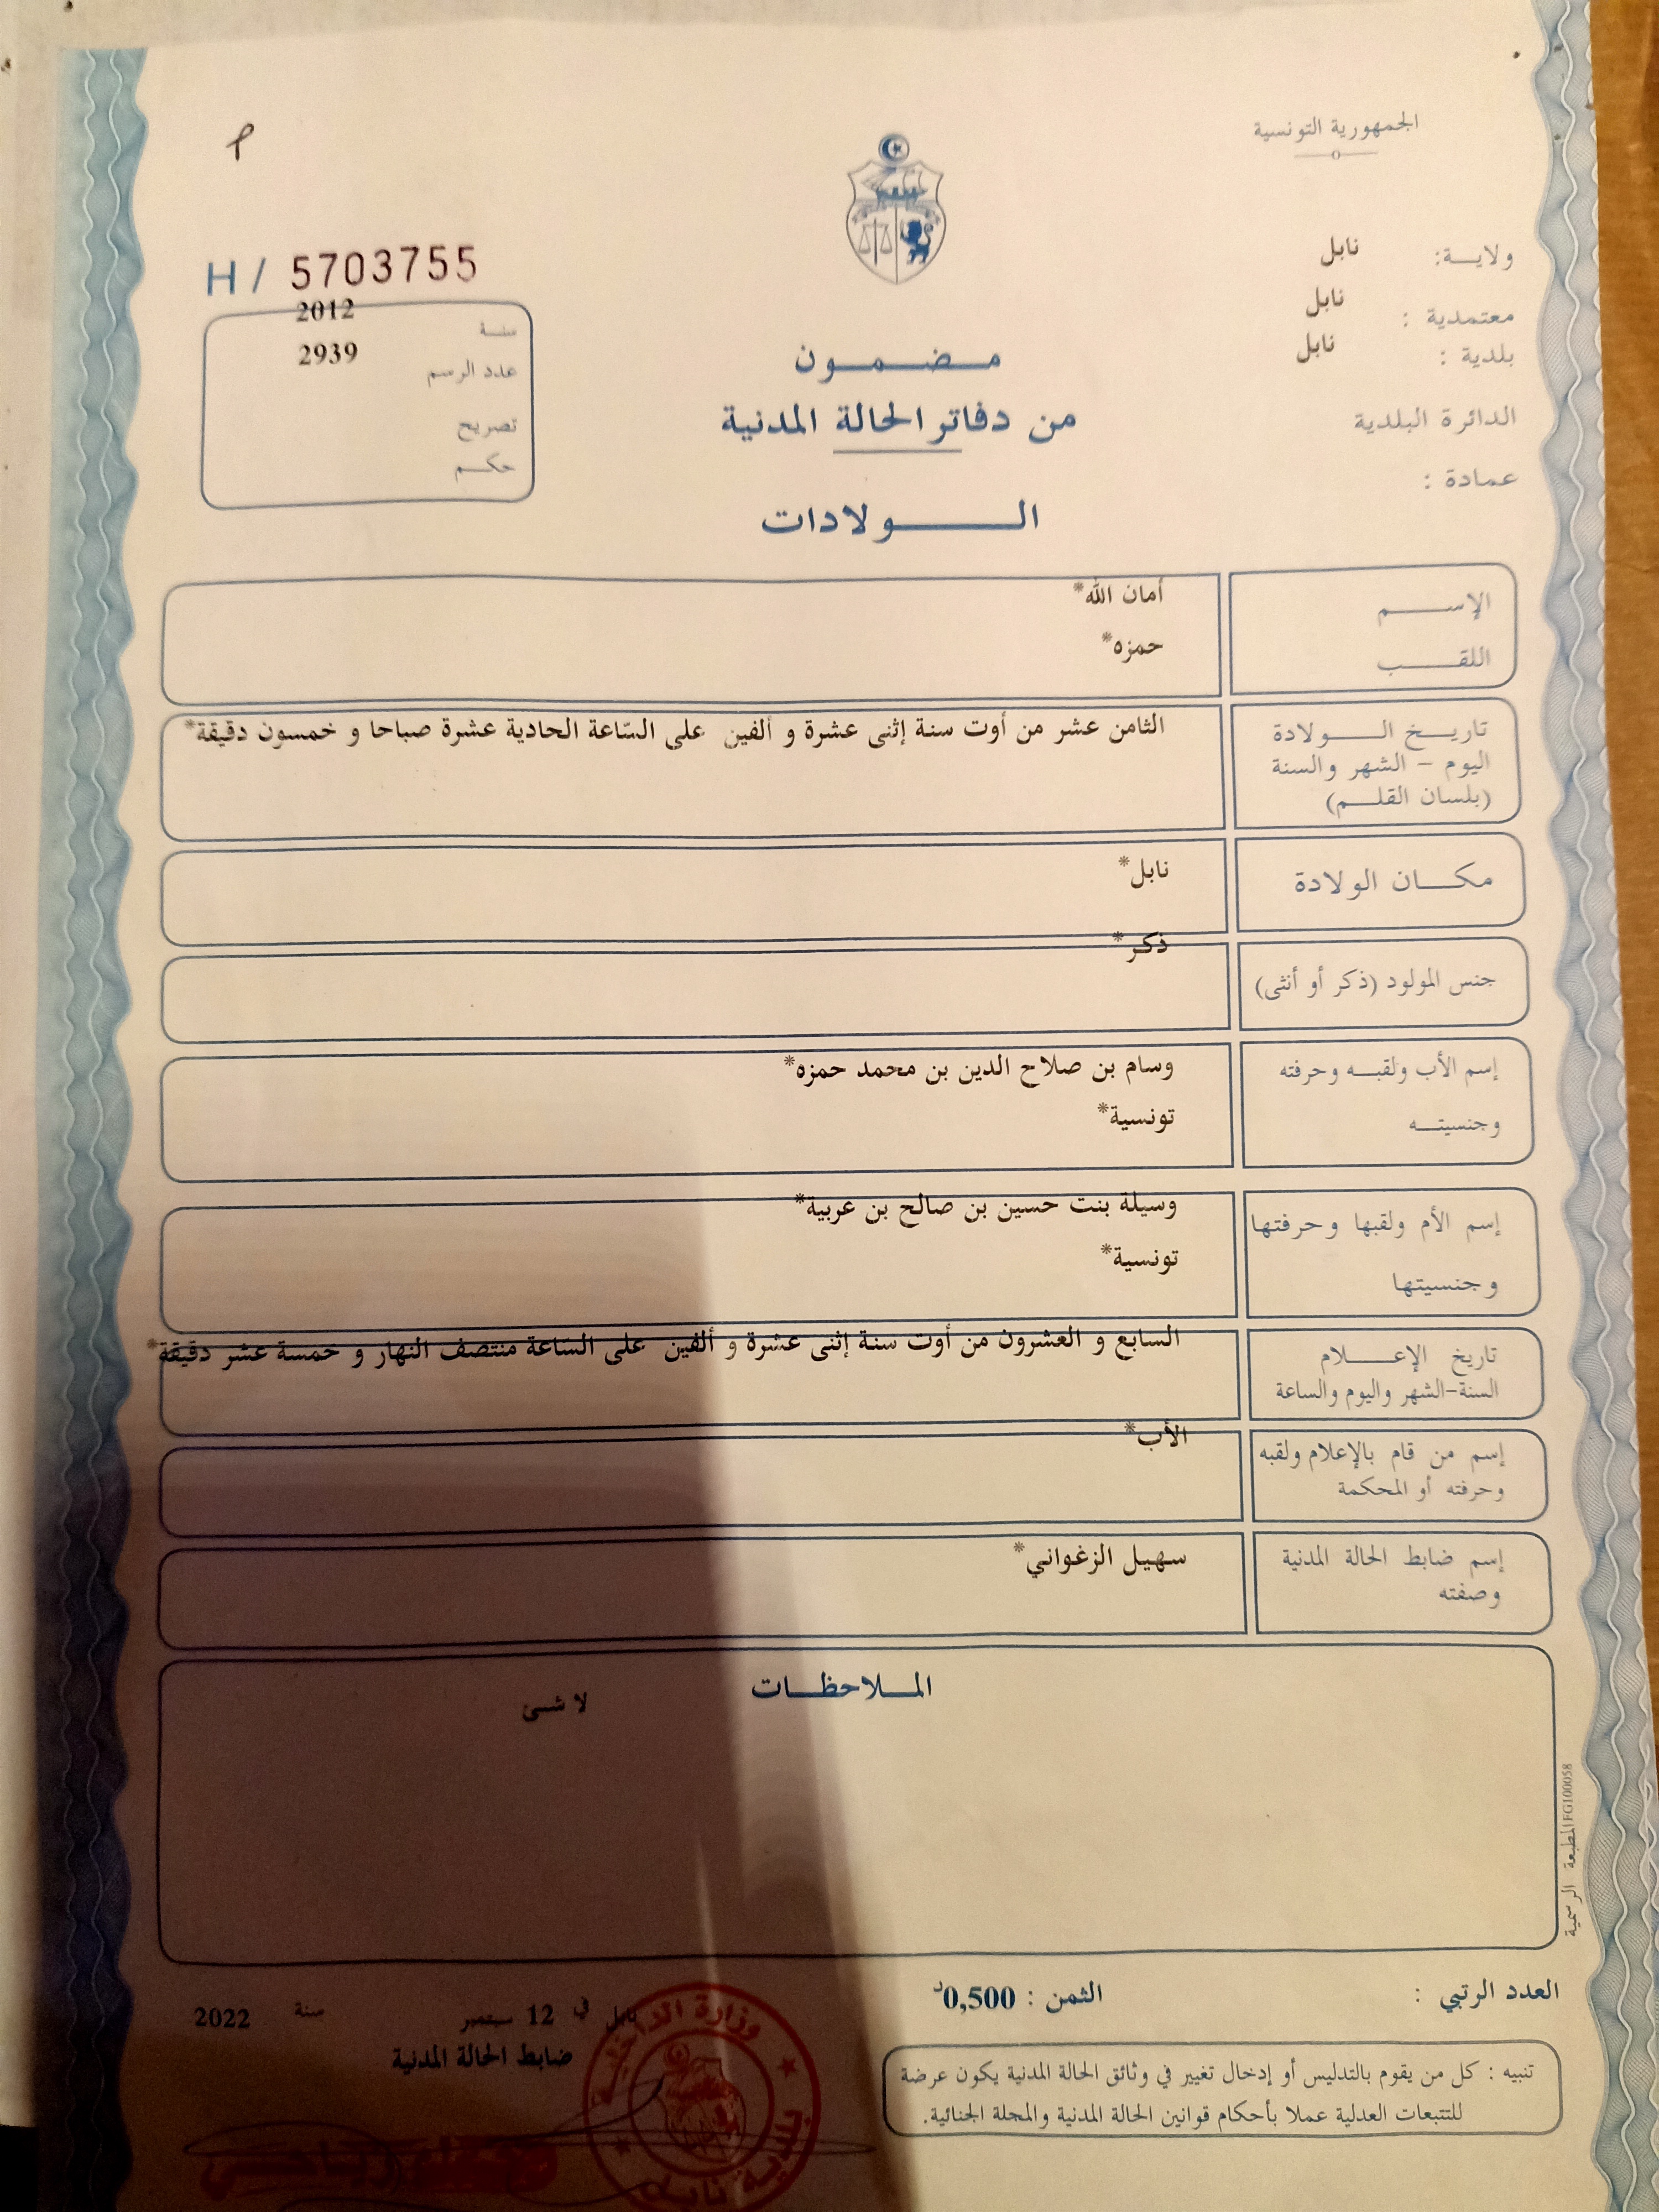 الجمهورية التونسية
ولاية: نابل
معتمدية : نابل
بلدية : نابل
الدائرة البلدية
عمادة :
H / 5703755
سنة 2012
عدد الرسم 2939
تصريح
حكم
مضمون
من دفاتر الحالة المدنية
الولادات
الإسم أمان الله*
اللقب حمزه*
تاريخ الولادة الثامن عشر من أوت سنة إثنى عشرة و ألفين على السّاعة الحادية عشرة صباحا و خمسون دقيقة*
اليوم - الشهر والسنة
(بلسان القلم)
مكان الولادة نابل*
جنس المولود (ذكر أو أنثى) ذكر*
إسم الأب ولقبه وحرفته وسام بن صلاح الدين بن محمد حمزه*
وجنسيته تونسية*
إسم الأم ولقبها وحرفتها وسيلة بنت حسين بن صالح بن عربية*
وجنسيتها تونسية*
تاريخ الإعلام السابع و العشرون من أوت سنة إثنى عشرة و ألفين على السّاعة منتصف النهار و خمسة عشر دقيقة*
السنة-الشهر واليوم والساعة
إسم من قام بالإعلام ولقبه الأب*
وحرفته أو المحكمة
إسم ضابط الحالة المدنية سهيل الزغواني*
وصفته
الملاحظات
لا شئ
المطبعة الرسمية FG100058
العدد الرتبي :
الثمن : 0,500د
نابل في 12 سبتمبر سنة 2022
ضابط الحالة المدنية
تنبيه : كل من يقوم بالتدليس أو إدخال تغيير في وثائق الحالة المدنية يكون عرضة
للتتبعات العدلية عملا بأحكام قوانين الحالة المدنية والمجلة الجنائية.
وزارة الداخلية
بلدية نابل